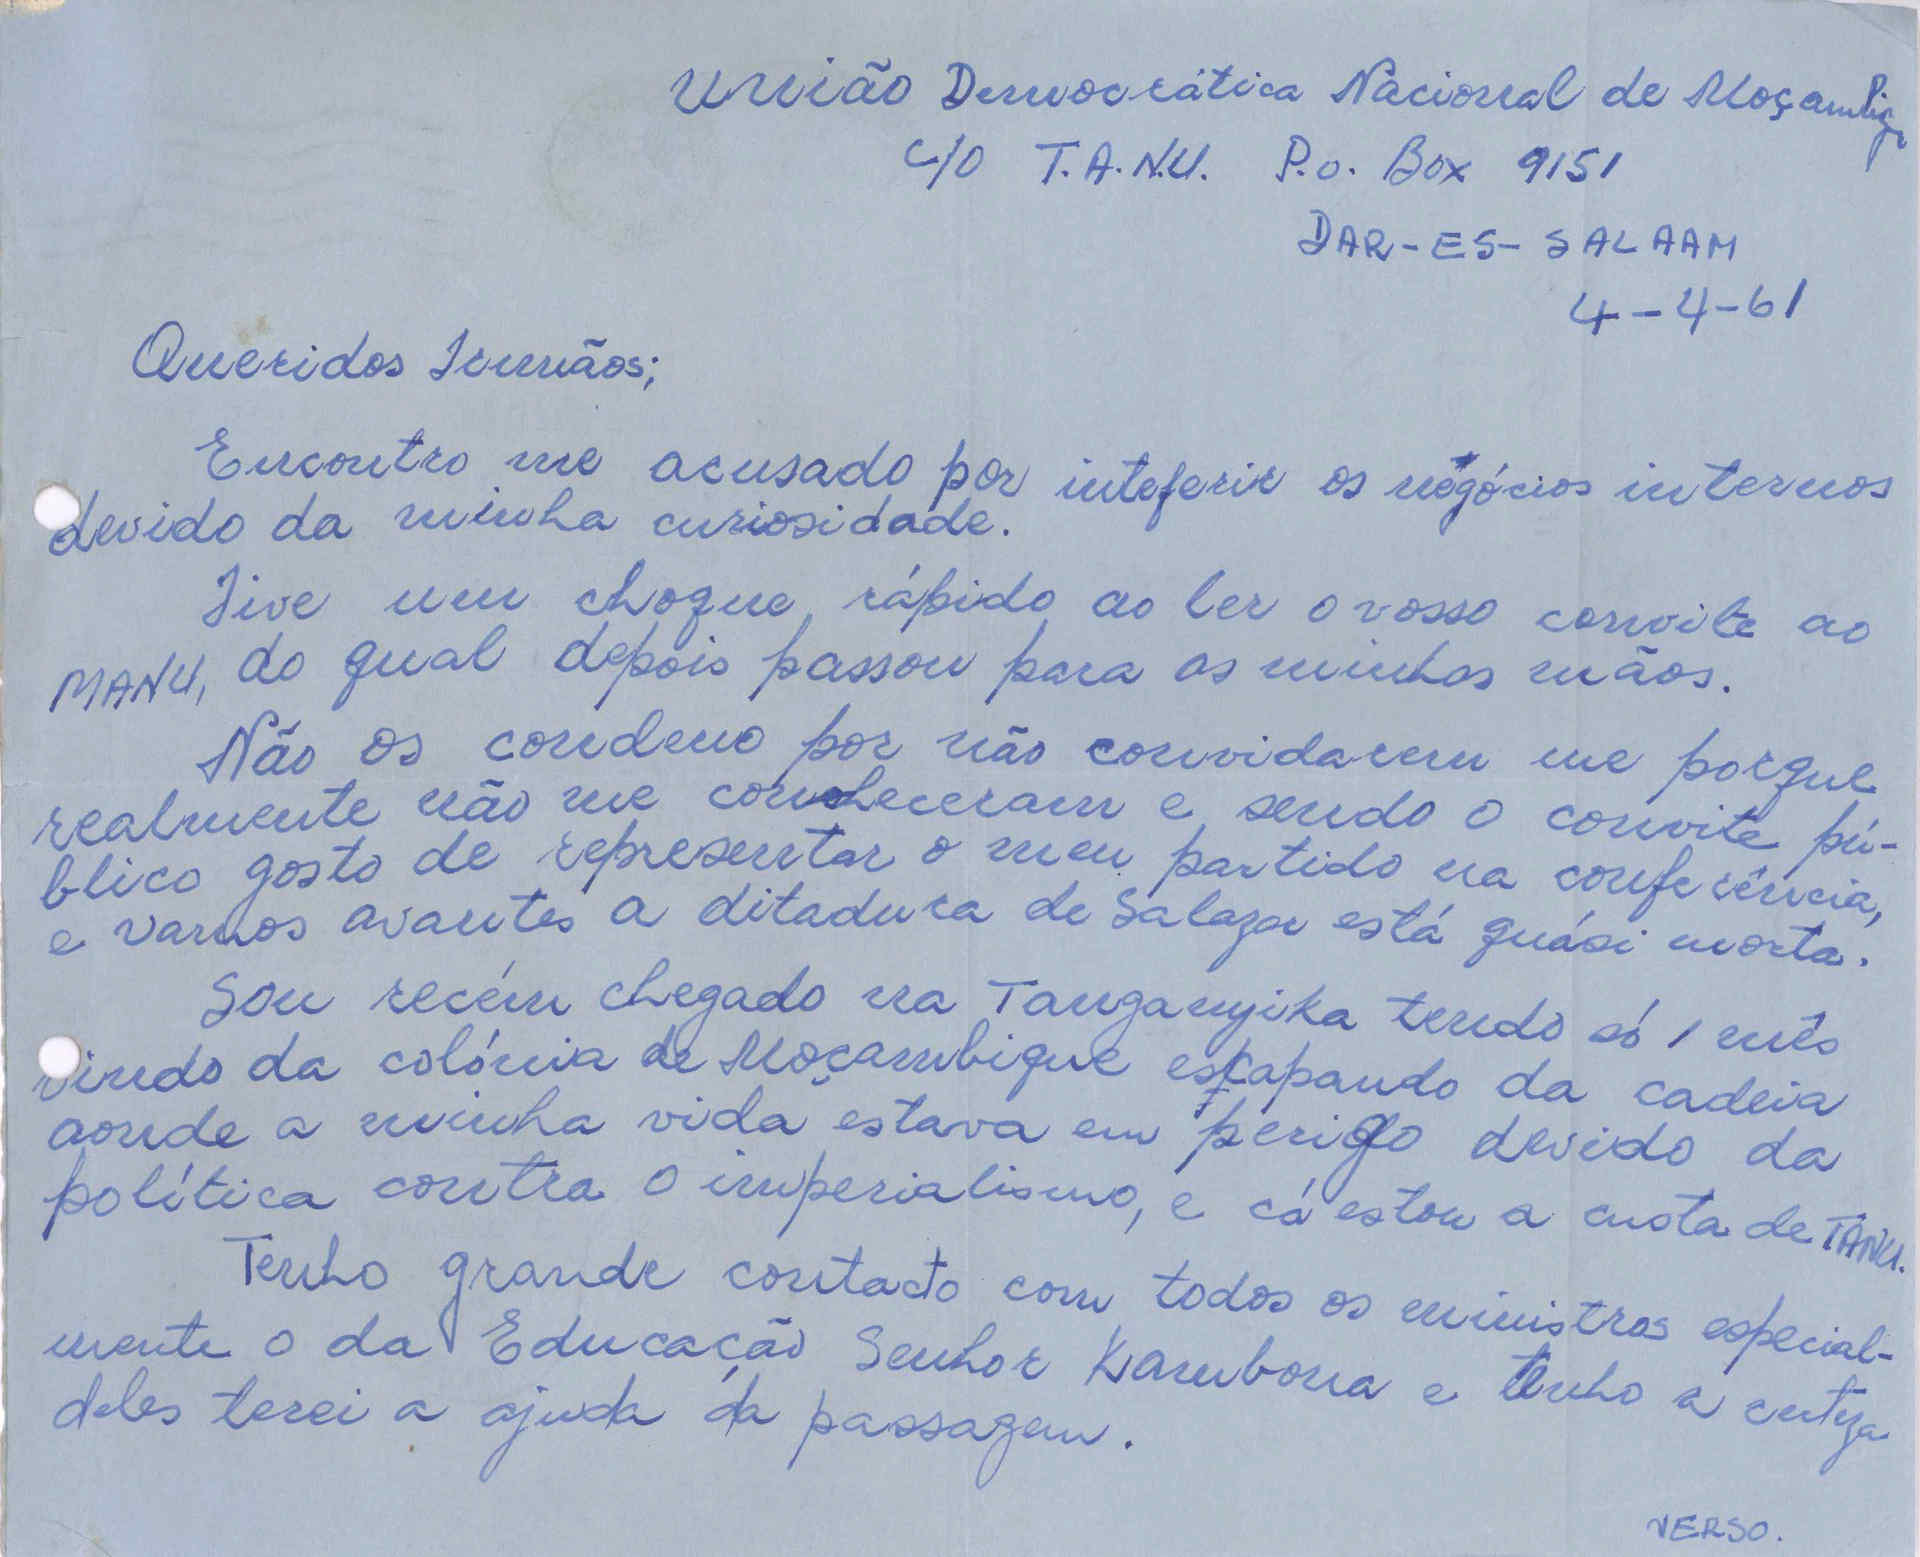 União Democrática Nacional de Moçambique
c/o T.A.N.U. P.o. Box 9151
DAR-ES-SALAAM
4-4-61
Queridos Irmãos;
Encontro me acusado por inteferir os negócios internos
devido da minha curiosidade.
Tive um choque rápido ao ler o vosso convite ao
MANU, do qual depois passou para as minhas mãos.
Não os condeno por não convidarem me porque
realmente não me conheceram e sendo o convite pú-
blico gosto de representar o meu partido na conferência,
e vamos avantes a ditadura de Salazar está quási morta.
Sou recém chegado na Tanganyika tendo só 1 mês
vindo da colónia de Moçambique escapando da cadeia
aonde a minha vida estava em perigo devido da
política contra o imperialismo, e cá estou a custa de TANU.
Tenho grande contacto com todos os ministros especial-
mente o da Educação Senhor Kambona e tenho a certeza
deles terei a ajuda da passagem.
VERSO.